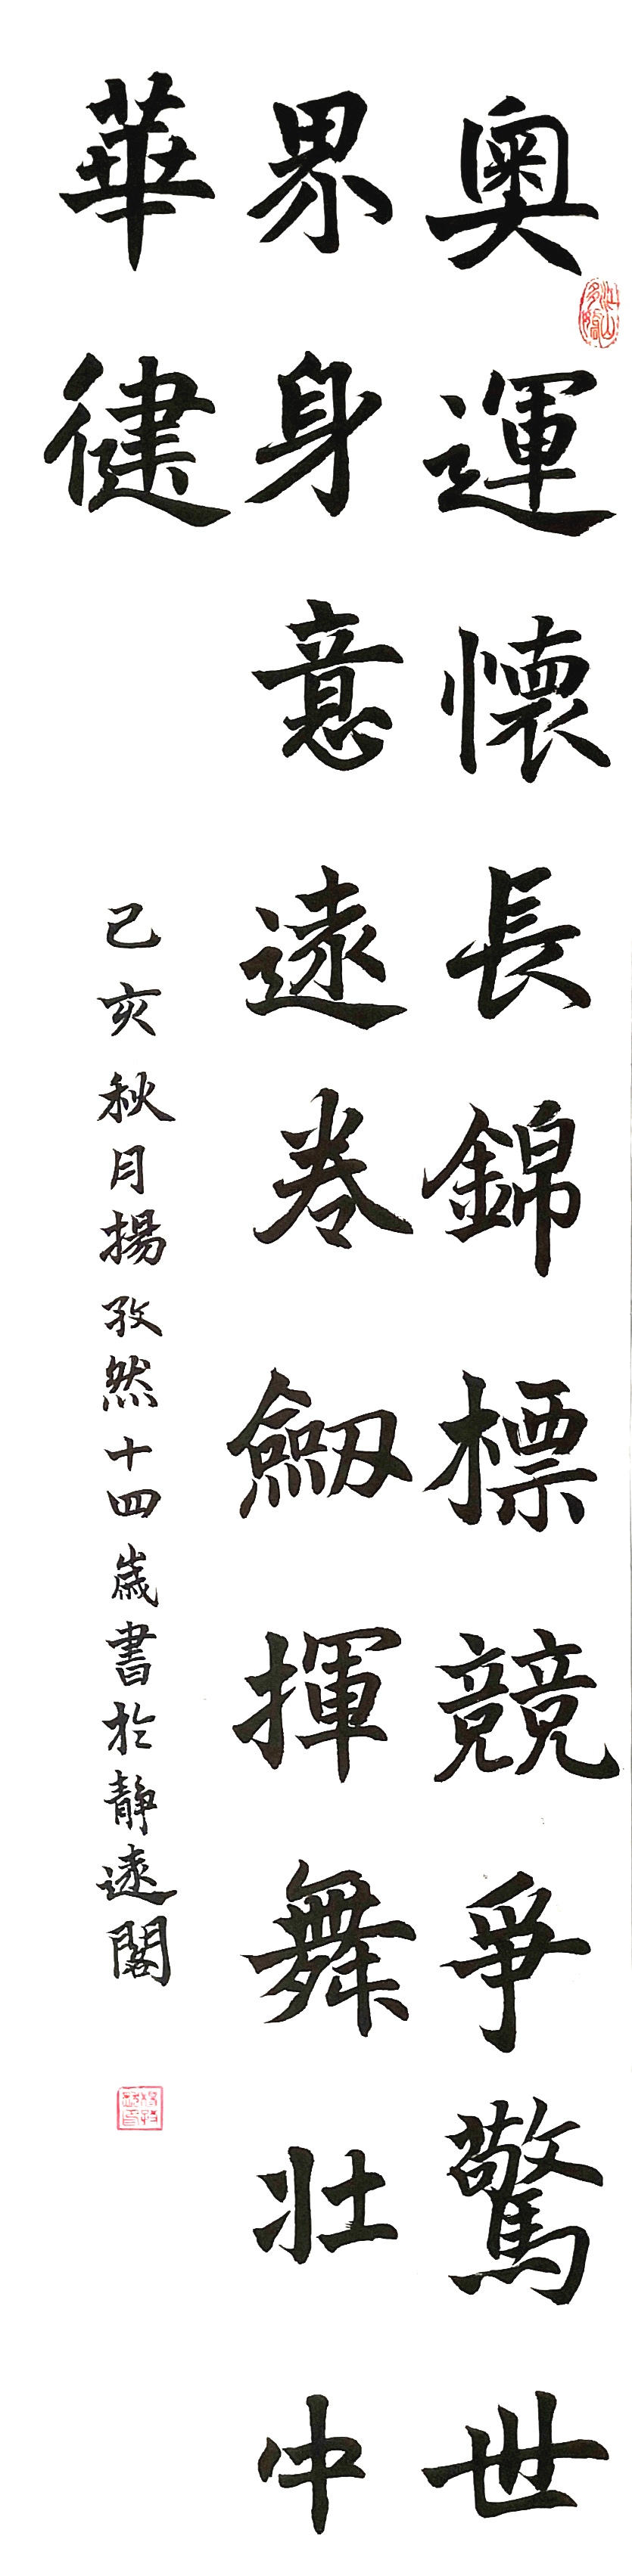 奧運懷長錦標競爭驚世
界身意遠卷劔揮舞壯中
華健
己亥秋月揚孜然十四歲書於靜遠閣
江山多嬌